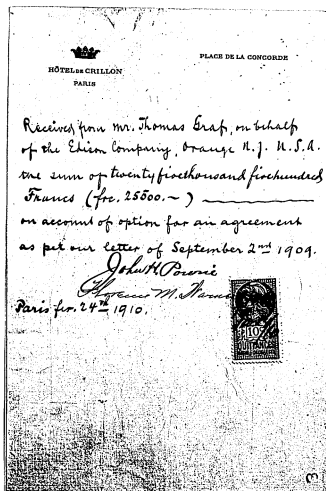 HÔTEL DE CRILLON
PARIS
PLACE DE LA CONCORDE
Received from Mr. Thomas Graf, on behalf
of the Edison Company, Orange N.J. U.S.A.
the sum of twenty fivethousand fivehundred
Francs (frc. 25500.~)
on account of option for an agreement
as per our letter of September 2nd 1909.
John H. Powrie
Florence M. Warner
Paris 24th 1910.
QUITTANCES
3